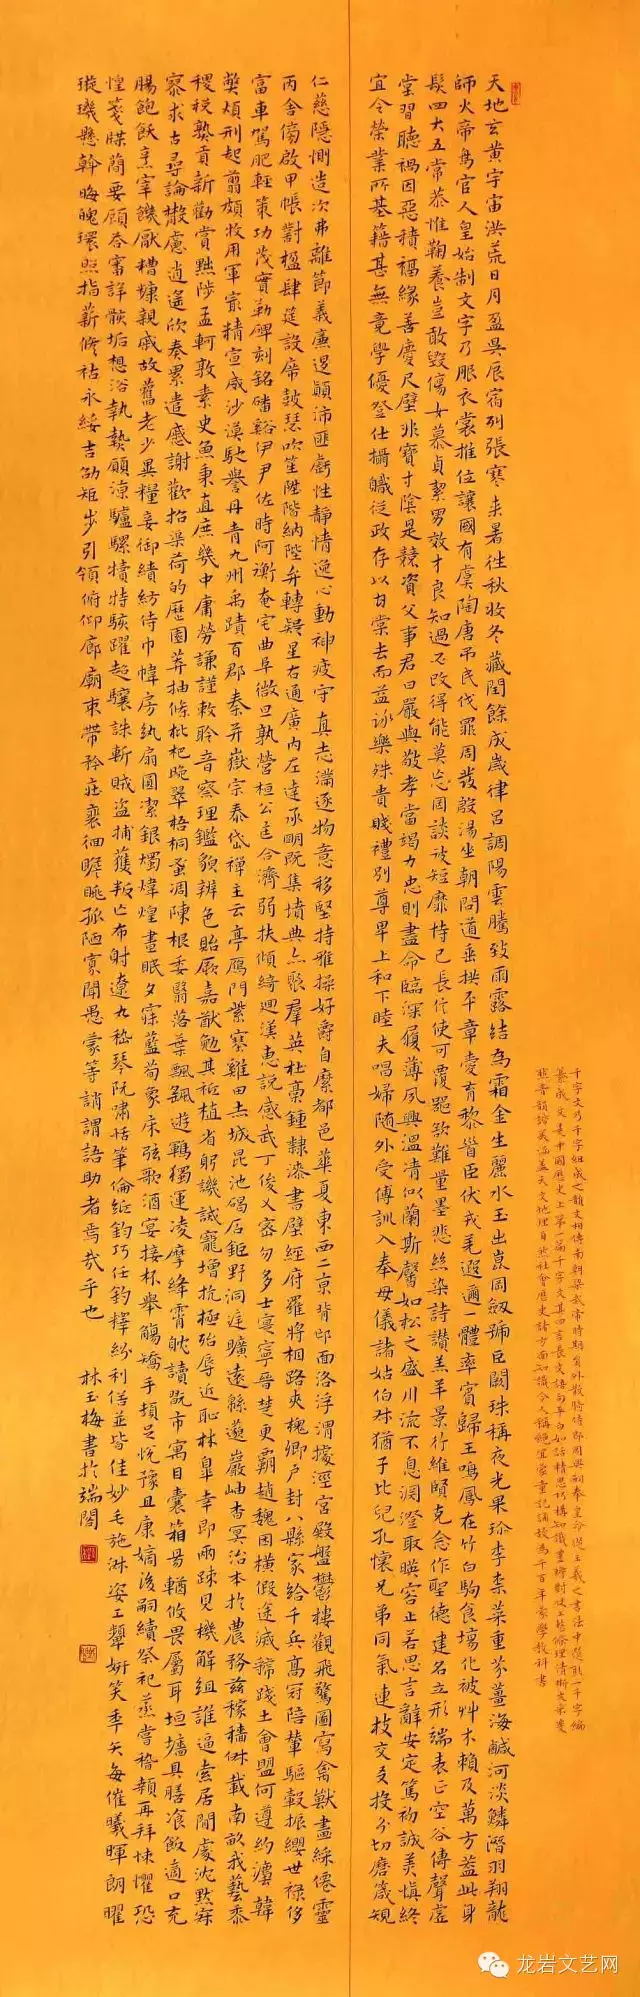 天地玄黄宇宙洪荒日月盈昃辰宿列張寒来暑往秋收冬藏閏餘成歲律呂調陽雲騰致雨露結為霜金生麗水玉出崑岡劍號巨闕珠稱夜光果珍李柰菜重芥薑海鹹河淡鱗潛羽翔龍
師火帝鳥官人皇始制文字乃服衣裳推位讓國有虞陶唐弔民伐罪周發殷湯坐朝問道垂拱平章愛育黎首臣伏戎羌遐邇一體率賓歸王鳴鳳在竹白駒食場化被艸木賴及萬方蓋此身
髮四大五常恭惟鞠養豈敢毀傷女慕貞絜男效才良知過必改得能莫忘罔談彼短靡恃己長信使可覆器欲難量墨悲絲染詩讚羔羊景行維賢克念作聖德建名立形端表正空谷傳聲虛
堂習聽禍因惡積福緣善慶尺璧非寶寸陰是競資父事君曰嚴與敬孝當竭力忠則盡命臨深履薄夙興溫清似蘭斯馨如松之盛川流不息淵澄取暎容止若思言辭安定篤初誠美慎終
宜令榮業所基籍甚無竟學優登仕攝職從政存以甘棠去而益詠樂殊貴賤禮別尊卑上和下睦夫唱婦随外受傅訓入奉母儀諸姑伯叔猶子比兒孔懷兄弟同氣連枝交友投分切磨箴規
仁慈隱惻造次弗離節義廉退顛沛匪虧性靜情逸心動神疲守真志滿逐物意移堅持雅操好爵自縻都邑華夏東西二京背邙面洛浮渭據涇宮殿盤鬱樓觀飛驚圖寫禽獸畫綵僊靈
丙舍傍啟甲帳對楹肆筵設席鼓瑟吹笙陞階納陛弁轉疑星右通廣內左達承明既集墳典亦聚羣英杜稾鍾隸漆書壁經府羅將相路夾槐卿户封八縣家給千兵高冠陪輦驅轂振纓世祿侈
富車駕肥輕策功茂實勒碑刻銘磻谿伊尹佐時阿衡奄宅曲阜微旦孰營桓公匡合濟弱扶傾綺迴漢惠說感武丁俊乂密勿多士寔寧晉楚更霸趙魏困橫假途滅虢踐土會盟何遵約法韓
弊煩刑起翦頗牧用軍最精宣威沙漠馳譽丹青九州禹蹟百郡秦并嶽宗泰岱禪主云亭雁門紫塞雞田赤城昆池碣石鉅野洞庭曠遠緜邈巖岫杳冥治本於農務茲稼穡俶載南畝我藝黍
稷稅熟貢新勸賞黜陟孟軻敦素史魚秉直庶幾中庸勞謙謹敕聆音察理鑑貌辨色貽厥嘉猷勉其祗植省躬譏誡寵增抗極殆辱近恥林皐幸即兩疎見機解組誰逼索居閒處沈默寂
寥求古尋論散慮逍遙欣奏累遣慼謝歡招渠荷的歷園莽抽條枇杷晚翠梧桐蚤凋陳根委翳落葉飄颻遊鵾獨運凌摩絳霄耽讀翫市寓目囊箱易輶攸畏屬耳垣墻具膳湌飯適口充
腸飽飫烹宰饑厭糟糠親戚故舊老少異糧妾御績紡侍巾帷房紈扇圓潔銀燭煒煌晝眠夕寐藍筍象床弦歌酒宴接杯舉觴矯手頓足悅豫且康嫡後嗣續祭祀蒸嘗稽顙再拜悚懼恐
惶箋牒簡要顧答審詳骸垢想浴執熱願涼驢騾犢特駭躍超驤誅斬賊盜捕獲叛亡布射遼丸嵇琴阮嘯恬筆倫紙鈞巧任釣釋紛利俗並皆佳妙毛施淑姿工顰妍笑年矢每催曦暉朗曜
璇璣懸斡晦魄環照指薪修祜永綏吉劭矩步引領俯仰廊廟束帶矜莊襄徊瞻眺孤陋寡聞愚蒙等誚謂語助者焉哉乎也 林玉梅書於端閣
龙岩文艺网